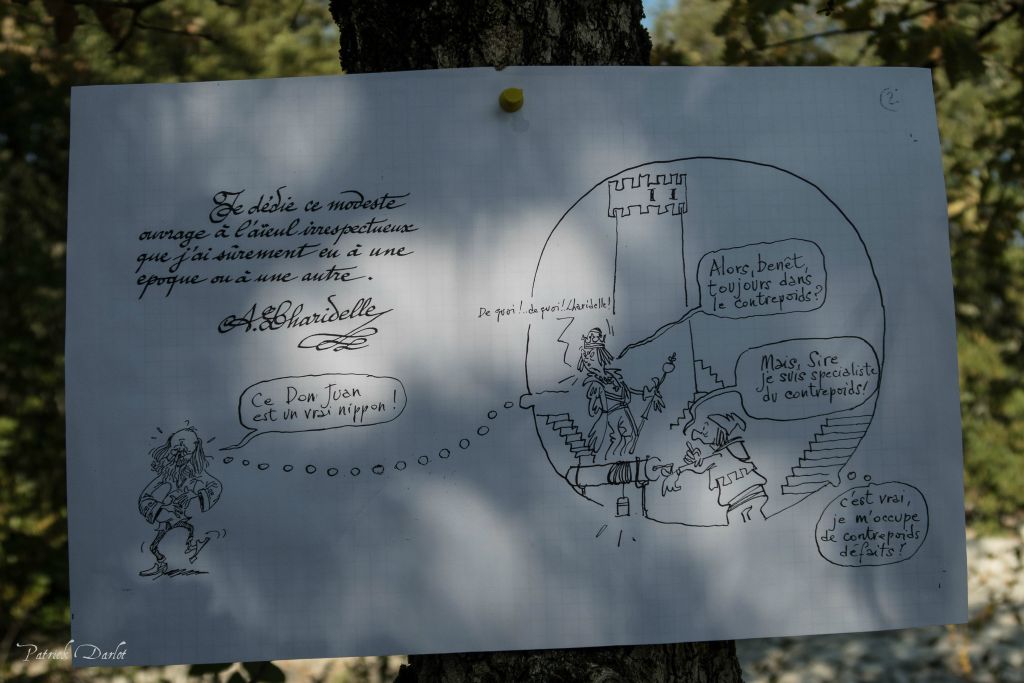 (2)
Je dédie ce modeste
ouvrage à l'aïeul irrespectueux
que j'ai sûrement eu à une
epoque ou à une autre.
A. Lharidelle
Ce Don Juan
est un vrai nippon!
De quoi!..de quoi!!Lharidelle!
Alors, benêt,
toujours dans
le contrepoids?
Mais, Sire
je suis specialiste
du contrepoids!
c'est vrai,
je m'occupe
de contrepoids
défaits!
Patrick Darlot